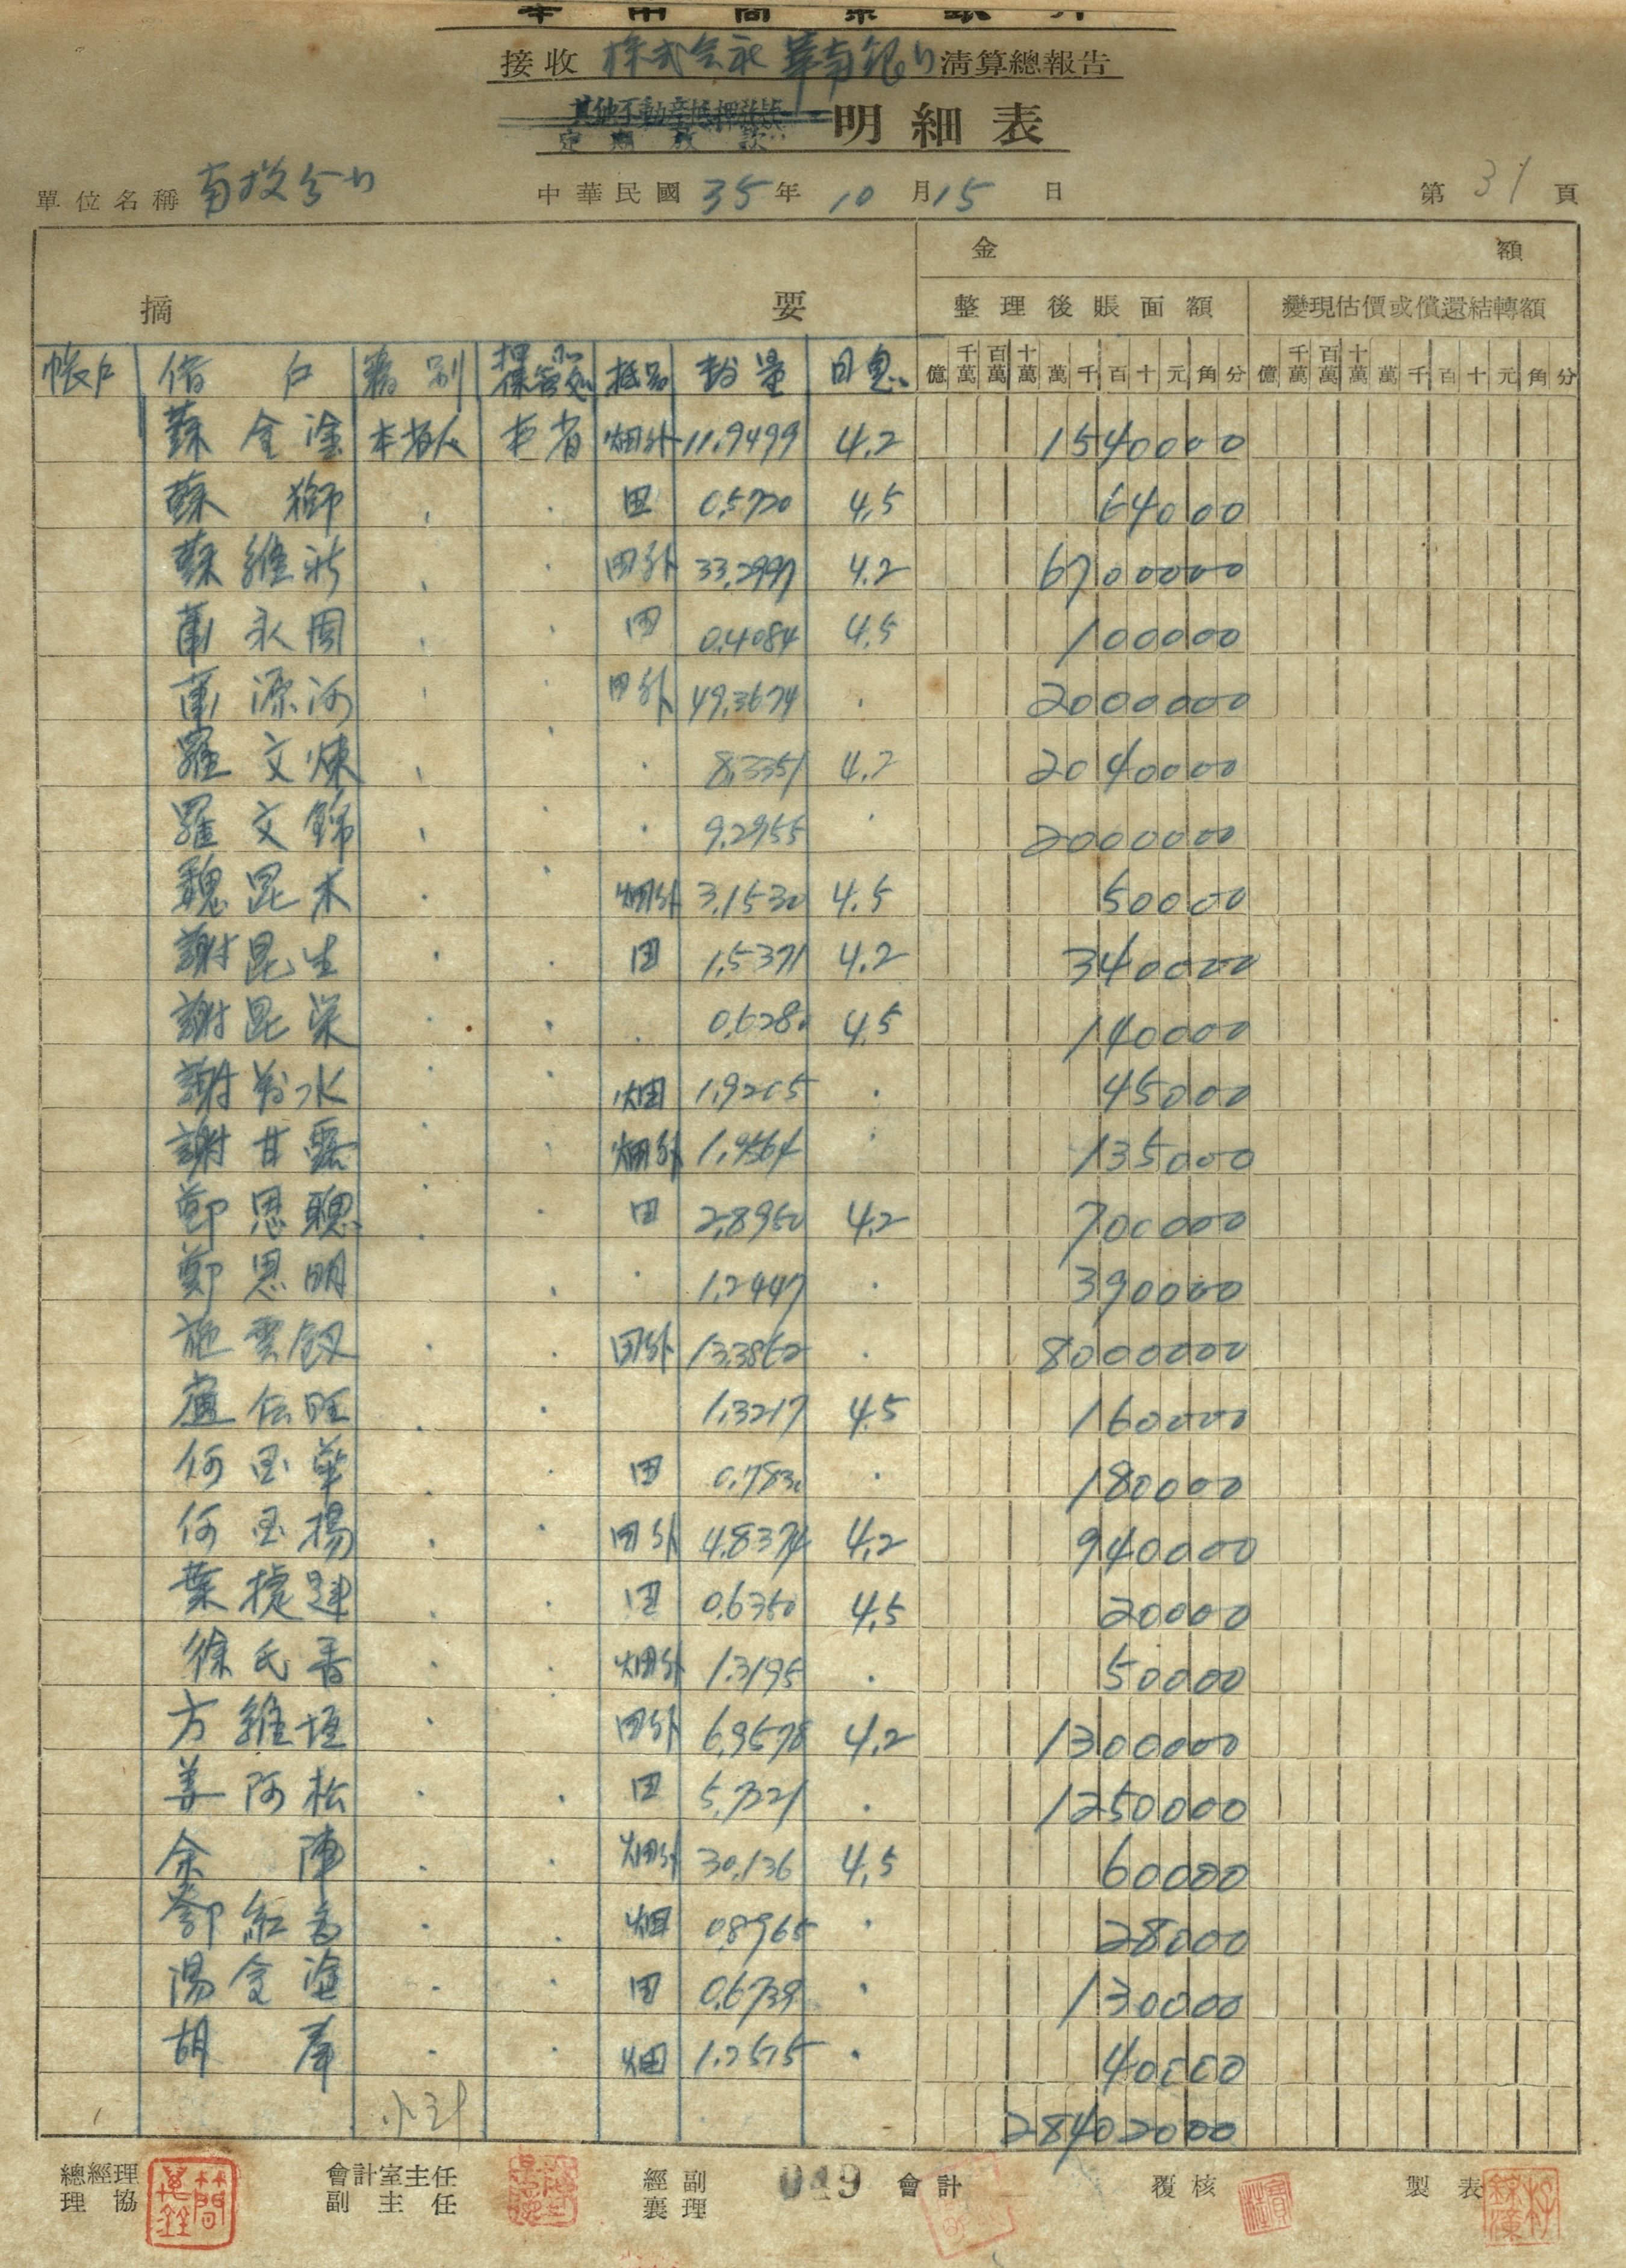 接收 株式会社 華南銀行 清算總報告
其他不動産抵押放款
定期放款 明細表
單位名稱 南投分行 中華民國 35 年 10 月 15 日 第 31 頁
金 額
摘 要 整理後賬面額 變現估價或償還結轉額
帳戶 借戶 籍別 保管処 抵品 数量 日息 億 千萬 百萬 十萬 萬 千 百 十 元 角 分 億 千萬 百萬 十萬 萬 千 百 十 元 角 分
蘇金塗 本省人 本省 畑外 11.9499 4.2 1540000
蘇獅 . . 田 0.5720 4.5 64000
蘇維新 . . 田外 33.2997 4.2 6700000
蕭永周 . . 田 0.4084 4.5 100000
蕭源河 . . 田外 49.3674 . 2000000
羅文煉 . . . 8.3351 4.2 2040000
羅文錦 . . . 9.2955 . 2000000
魏昆木 . . 畑外 3.1530 4.5 50000
謝昆生 . . 田 1.5371 4.2 340000
謝昆栄 . . . 0.6280 4.5 140000
謝水 . . 畑 1.9205 . 45000
謝甘露 . . 畑外 1.9564 . 135000
鄭恩聰 . . 田 2.8950 4.2 700000
鄭恩明 . . 1.2447 . 390000
施雲釵 . . 田外 13.3862 . 8000000
盧伝旺 . . 1.3217 4.5 160000
何国華 . 田 0.7830 . 180000
何国揚 . . 田外 4.8374 4.2 940000
葉捷建 . . 田 0.6350 4.5 20000
徐氏香 . . 畑外 1.3195 . 50000
方維垣 . 田外 6.9578 4.2 1300000
姜阿松 . . 田 5.7221 . 1250000
余陣 . . 畑外 30.136 4.5 60000
鄧紅 . . 畑 0.8965 . 28000
湯金塗 . . 田 0.6739 . 130000
胡 . . 畑 1.2575 . 40000
小計 28402000
總經理 會計室主任 經副 049 會計 覆核 製表
理協 副主任 襄理